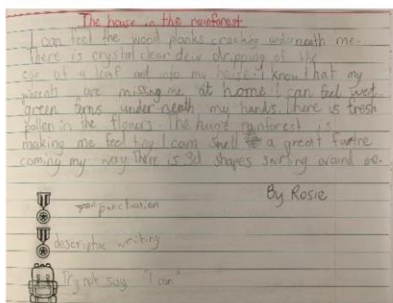 The house in the rainforest
I can feel the wood planks creaking underneath me.
There is crystal clear dew dripping of the
of a leaf and into my house. I know that my
parents are missing me at home I can feel wet
green ferns under neath my hands. There is fresh
pollen in the flowers. The huge rainforest is
making me feel tiny I can smell a great
coming my way. There is 3d shapes swirling around
By Rosie
punctuation
descriptive writing
Try not say "I can"